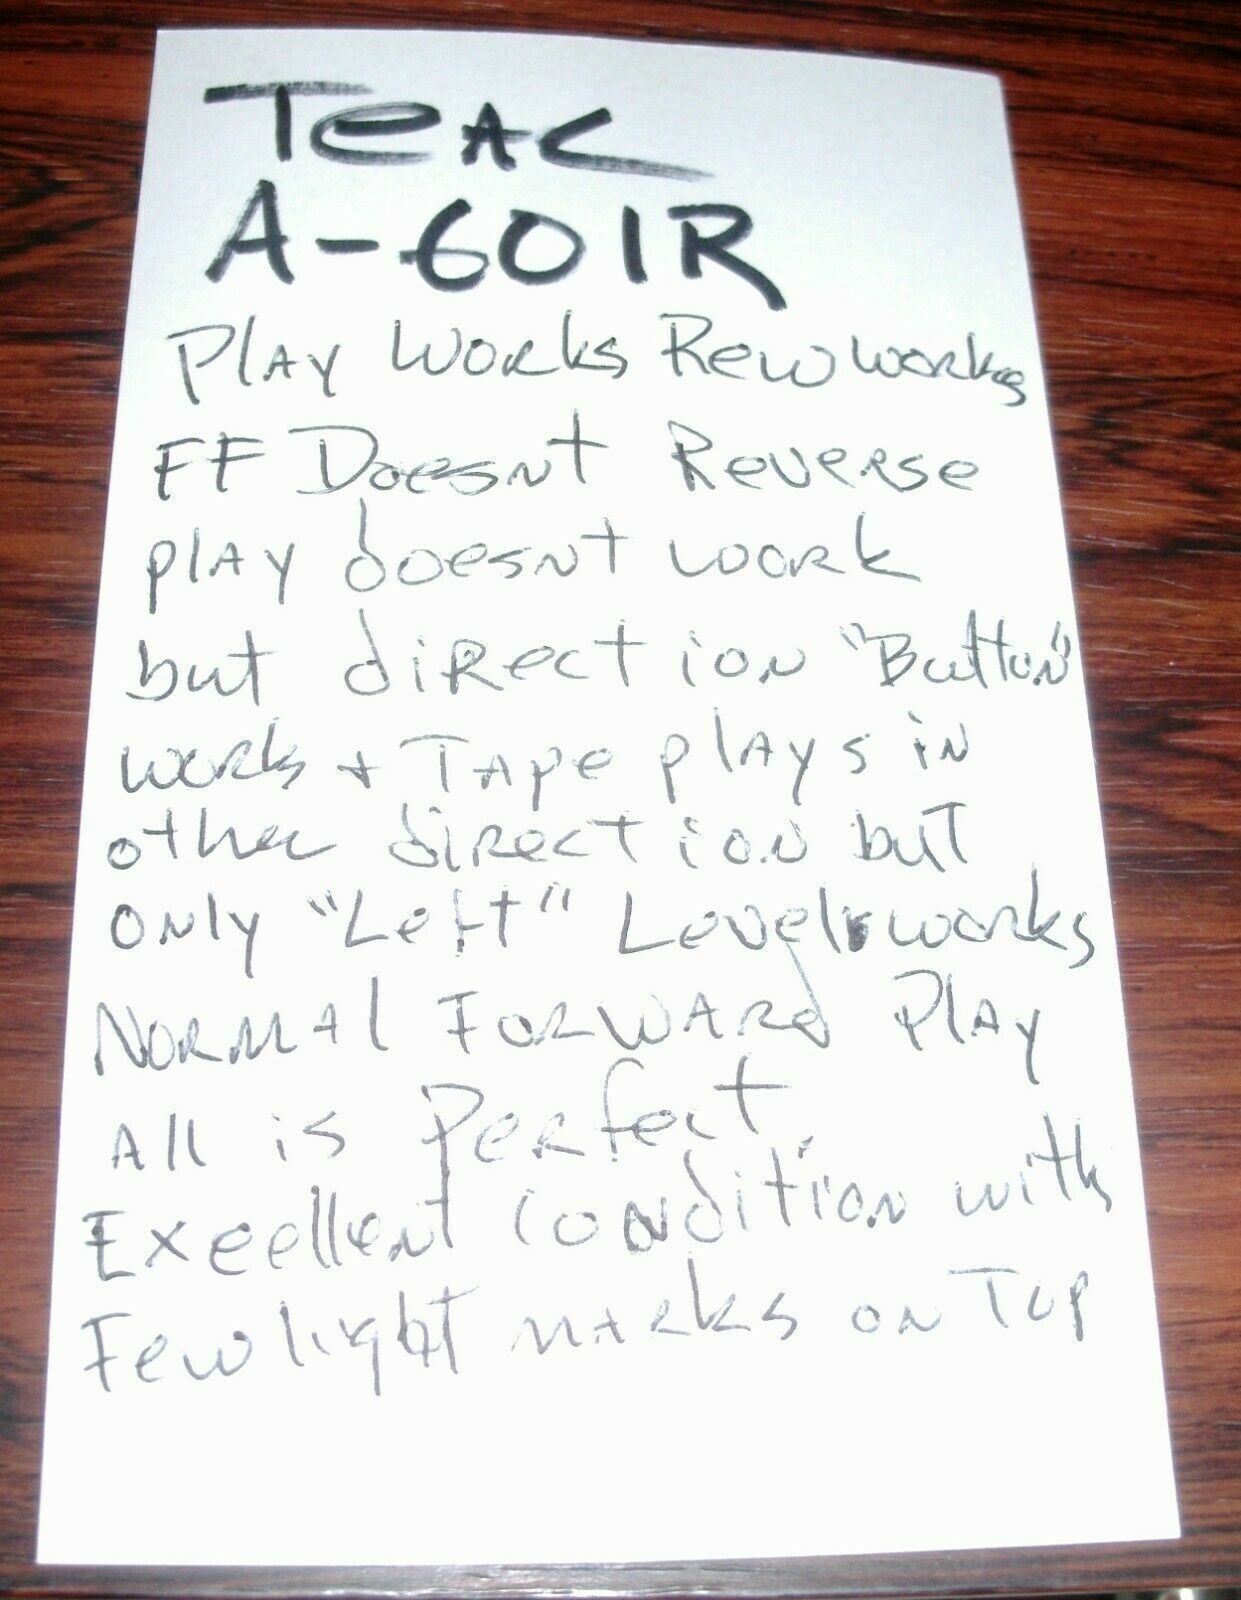 TEAC
A-601R
Play Works Rew works
FF Doesnt Reverse
play doesnt work
but direction "Button"
works + Tape plays in
other direction but
only "Left" Level works
Normal Forward Play
All is Perfect.
Excellent condition with
Few light marks on Top